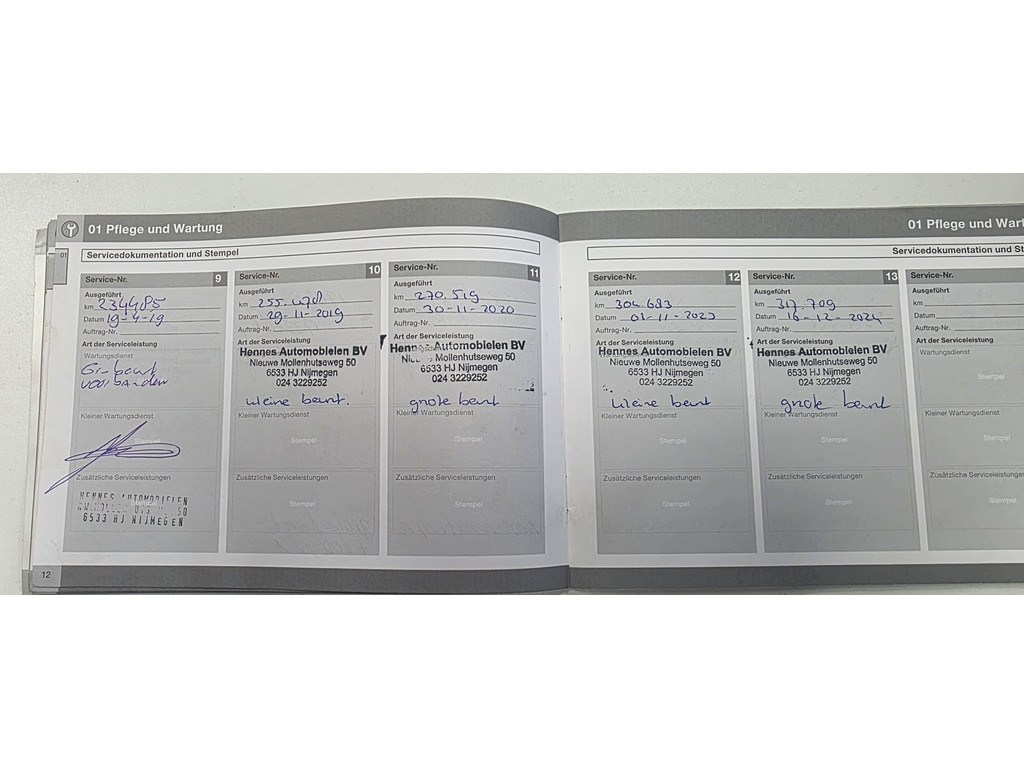 01 Pflege und Wartung
01
Servicedokumentation und Stempel
Service-Nr. 9
Ausgeführt
km 234485
Datum 19-4-19
Auftrag-Nr.
Art der Serviceleistung
Wartungsdienst
Gr. beurt
voorbanden
Kleiner Wartungsdienst
Stempel
Zusätzliche Serviceleistungen
HENNES AUTOMOBIELEN
50
6533 HJ NIJMEGEN
Service-Nr. 10
Ausgeführt
km 255.478
Datum 29-11-2019
Auftrag-Nr.
Art der Serviceleistung
Hennes Automobielen BV
Nieuwe Mollenhutseweg 50
6533 HJ Nijmegen
024 3229252
kleine beurt.
Kleiner Wartungsdienst
Stempel
Zusätzliche Serviceleistungen
Stempel
Service-Nr. 11
Ausgeführt
km 270.519
Datum 30-11-2020
Auftrag-Nr.
Art der Serviceleistung
Hennes Automobielen BV
Mollenhutseweg 50
6533 HJ Nijmegen
024 3229252
grote beurt
Kleiner Wartungsdienst
Stempel
Zusätzliche Serviceleistungen
Stempel
12
01 Pflege und Wart
Servicedokumentation und St
Service-Nr. 12
Ausgeführt
km 304.683
Datum 01-11-2023
Auftrag-Nr.
Art der Serviceleistung
Hennes Automobielen BV
Nieuwe Mollenhutseweg 50
6533 HJ Nijmegen
024 3229252
kleine beurt
Kleiner Wartungsdienst
Stempel
Zusätzliche Serviceleistungen
Stempel
Service-Nr. 13
Ausgeführt
km 317.709
Datum 16-12-2024
Auftrag-Nr.
Art der Serviceleistung
Hennes Automobielen BV
Nieuwe Mollenhutseweg 50
6533 HJ Nijmegen
024 3229252
grote beurt
Kleiner Wartungsdienst
Stempel
Zusätzliche Serviceleistungen
Stempel
Service-Nr.
Ausgeführt
km
Datum
Auftrag-Nr.
Art der Serviceleistung
Wartungsdienst
Stempel
Kleiner Wartungsdienst
Stempel
Zusätzliche Serviceleistungen
Stempel